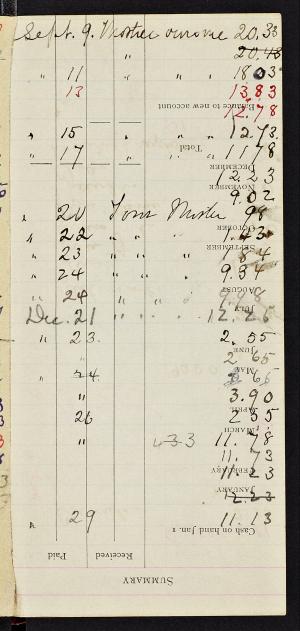 Sept. 9. 20.33
" 20.43
" 11 " 18.03
13 13.83
Balance to new account
12.78
" 15 " " " 12.73
Total
" 17 " " 11 78
DECEMBER
12.23
NOVEMBER
9.02
" 20 98
OCTOBER
" 22 " " " 1.43
SEPTEMBER
" 23 " " " 1.84
" 24 " " " 9.34
AUGUST
" 24 " " " 9.98
JULY
Dec. 21 " " " 12.26
" 23. 2.55
JUNE
2 65
MAY
" 24. 3 65
" 3.90
APRIL
26 2 35
MARCH
" 433 11.78
11.73
FEBRUARY
11.23
JANUARY
12.23
" 29 11.13
Cash on hand Jan. 1
Received
Paid
SUMMARY